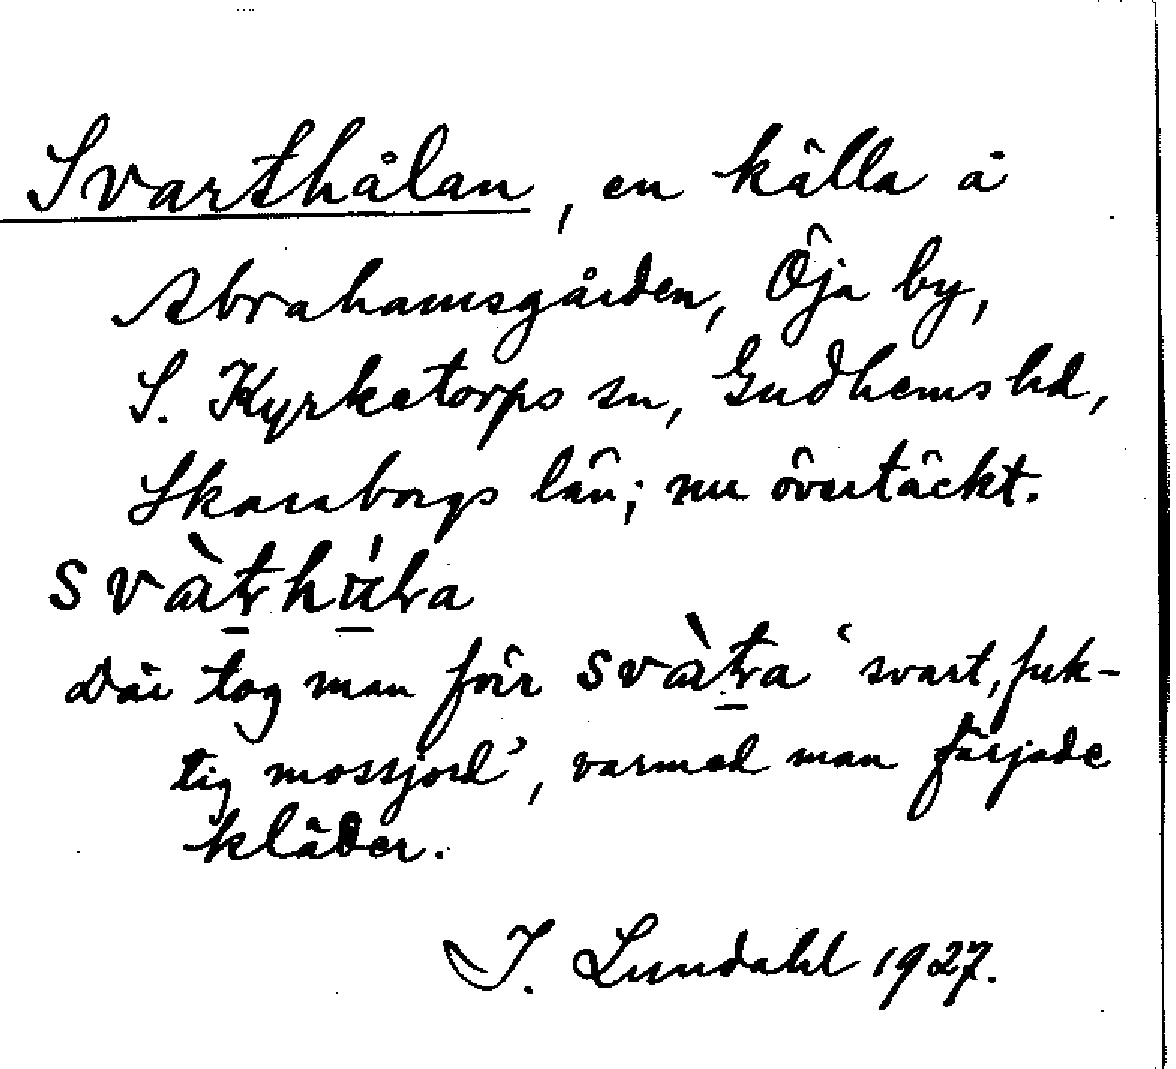 Svarthålan, en källa å
Abrahamsgården, Öja by,
S. Kyrketorps sn, Gudhems hd,
Skaraborgs län; nu övertäckt.
Där tog man för 'svart, fuk-
tig mossjord', varmed man färjade
kläder.
I. Lundahl 1927.